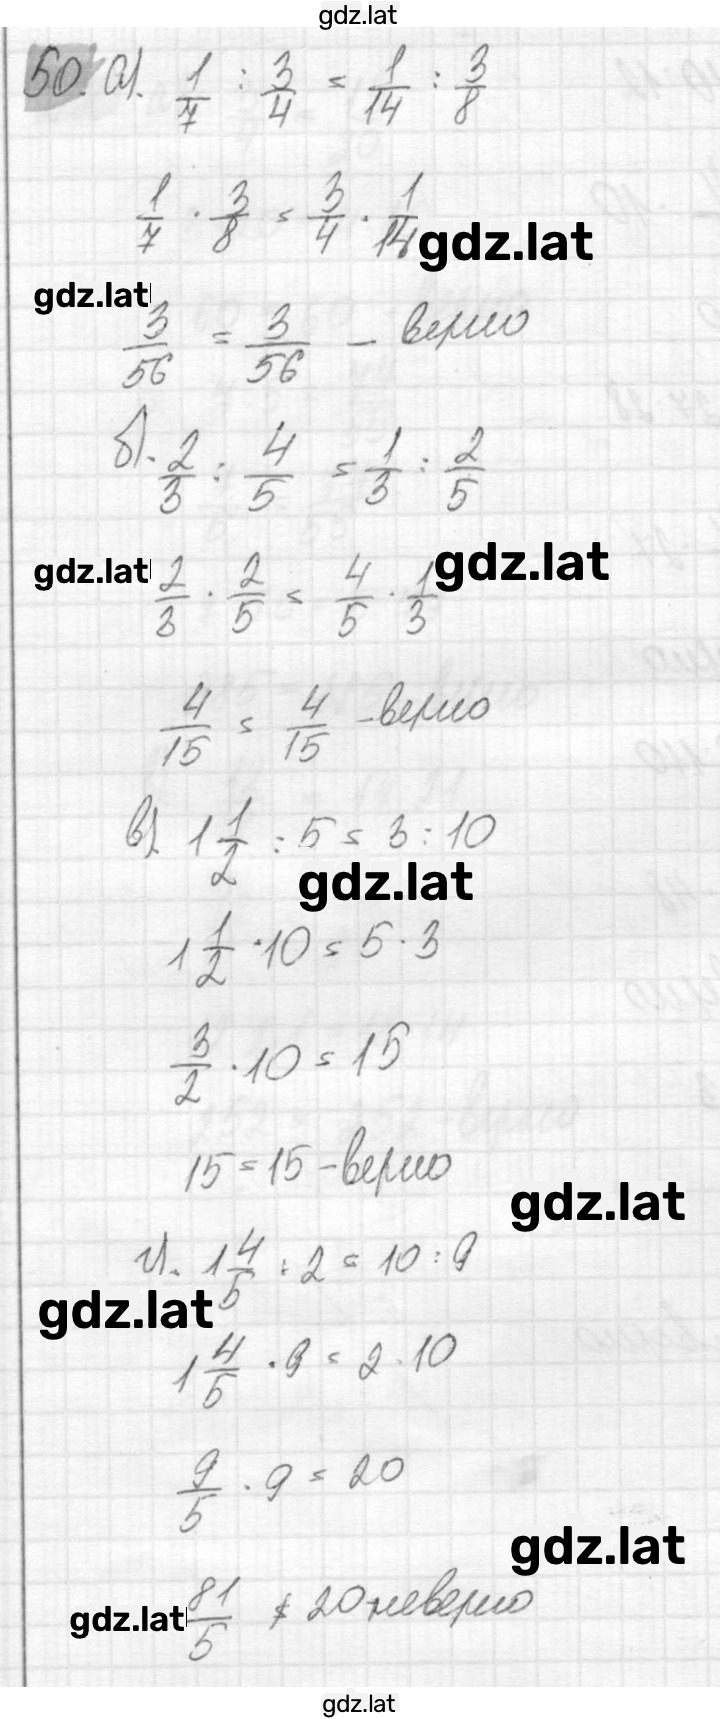 gdz.lat
50. а). 1/7 : 3/4 = 1/14 : 3/8
1/7 · 3/8 = 3/4 · 1/14
gdz.lat
gdz.lat
3/56 = 3/56 – верно
б). 2/3 : 4/5 = 1/3 : 2/5
gdz.lat
gdz.lat
2/3 · 2/5 = 4/5 · 1/3
4/15 = 4/15 – верно
в). 1 1/2 : 5 = 3 : 10
gdz.lat
1 1/2 · 10 = 5 · 3
3/2 · 10 = 15
15 = 15 – верно
gdz.lat
г). 1 4/5 : 2 = 10 : 9
gdz.lat
1 4/5 · 9 = 2 · 10
9/5 · 9 = 20
gdz.lat
gdz.lat
81/5 ≠ 20 неверно
gdz.lat